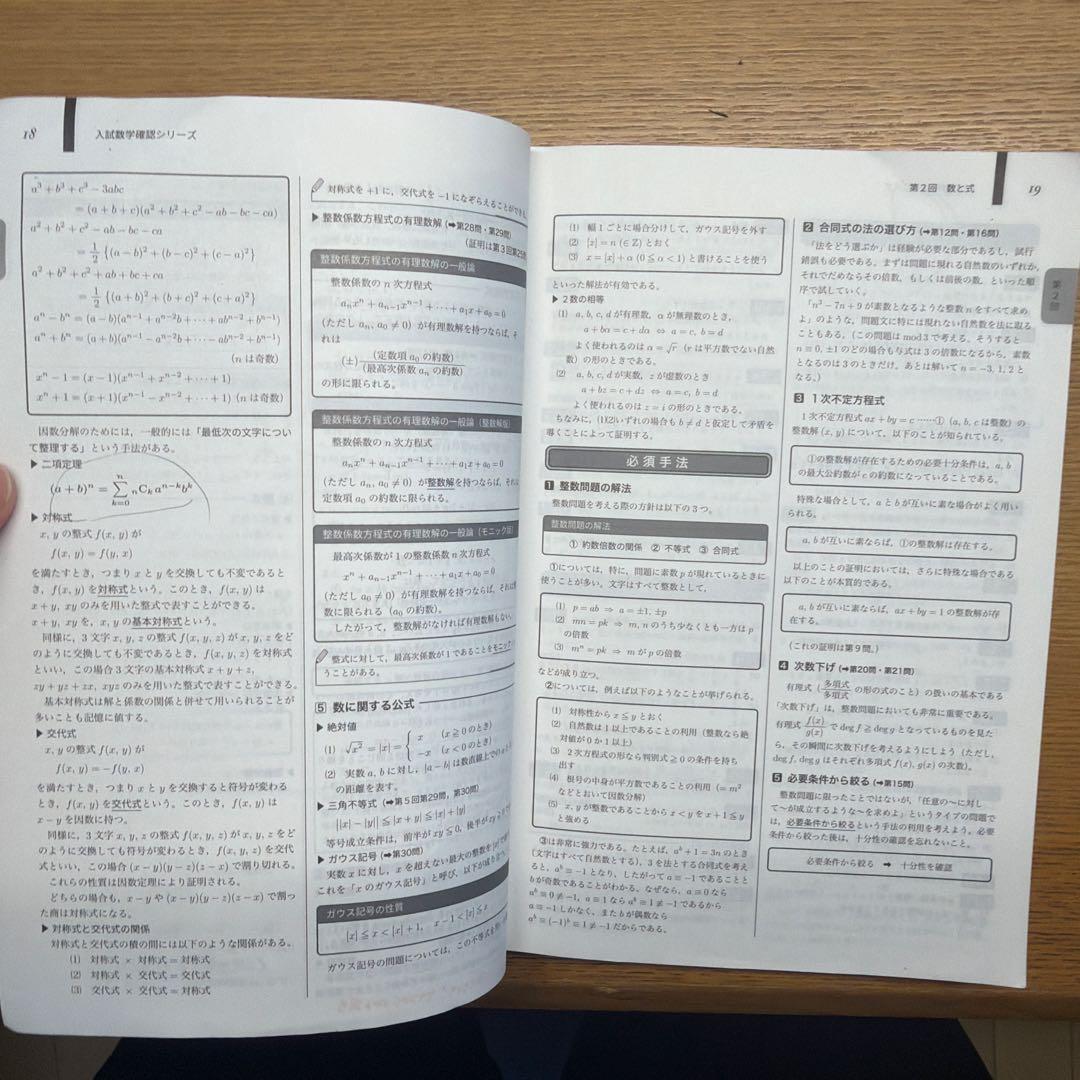 18
入試数学確認シリーズ
a³ + b³ + c³ − 3abc
= (a + b + c)(a² + b² + c² − ab − bc − ca)
a² + b² + c² − ab − bc − ca
= 1/2 {(a − b)² + (b − c)² + (c − a)²}
a² + b² + c² + ab + bc + ca
= 1/2 {(a + b)² + (b + c)² + (c + a)²}
aⁿ − bⁿ = (a − b)(aⁿ⁻¹ + aⁿ⁻²b + ⋯ + abⁿ⁻² + bⁿ⁻¹)
aⁿ + bⁿ = (a + b)(aⁿ⁻¹ − aⁿ⁻²b + ⋯ − abⁿ⁻² + bⁿ⁻¹)
(n は奇数)
xⁿ − 1 = (x − 1)(xⁿ⁻¹ + xⁿ⁻² + ⋯ + 1)
xⁿ + 1 = (x + 1)(xⁿ⁻¹ − xⁿ⁻² + ⋯ + 1) (n は奇数)
因数分解のためには，一般的には「最低次の文字につい
て整理する」という手法がある。
▶ 二項定理
(a + b)ⁿ = Σ[k=0→n] ₙCₖ aⁿ⁻ᵏbᵏ
▶ 対称式
x, y の整式 f(x, y) が
f(x, y) = f(y, x)
を満たすとき，つまり x と y を交換しても不変であると
き，f(x, y) は対称式という。このとき，f(x, y) は
x + y，xy のみを用いた整式で表すことができる。
x + y，xy を，x, y の基本対称式という。
同様に，3 文字 x, y, z の整式 f(x, y, z) が x, y, z をど
のように交換しても不変であるとき，f(x, y, z) を対称式
といい，この場合 3 文字の基本対称式 x + y + z，
xy + yz + zx，xyz のみを用いた整式で表すことができる。
基本対称式は解と係数の関係と併せて用いられることが
多いことも記憶に値する。
▶ 交代式
x, y の整式 f(x, y) が
f(x, y) = −f(y, x)
を満たすとき，つまり x と y を交換すると符号が変わると
き，f(x, y) を交代式という。このとき，f(x, y) は
x − y を因数に持つ。
同様に，3 文字 x, y, z の整式 f(x, y, z) が x, y, z をど
のように交換しても符号が変わるとき，f(x, y, z) を交代
式といい，この場合 (x − y)(y − z)(z − x) で割り切れる。
これらの性質は因数定理により証明される。
どちらの場合も，x − y や (x − y)(y − z)(z − x) で割っ
た商は対称式になる。
▶ 対称式と交代式の関係
対称式と交代式の積の間には以下のような関係がある。
(1) 対称式 × 対称式 = 対称式
(2) 対称式 × 交代式 = 交代式
(3) 交代式 × 交代式 = 対称式
対称式を +1 に，交代式を −1 になぞらえることができ
▶ 整数係数方程式の有理数解 (➡第28問・第29問)
(証明は第3回第25問
整数係数方程式の有理数解の一般論
整数係数の n 次方程式
aₙxⁿ + aₙ₋₁xⁿ⁻¹ + ⋯ + a₁x + a₀ = 0
(ただし aₙ, a₀ ≠ 0) が有理数解を持つならば，そ
れは
(±) (定数項 a₀ の約数)/(最高次係数 aₙ の約数)
の形に限られる。
整数係数方程式の有理数解の一般論 (整数解版)
整数係数の n 次方程式
aₙxⁿ + aₙ₋₁xⁿ⁻¹ + ⋯ + a₁x + a₀ = 0
(ただし aₙ, a₀ ≠ 0) が整数解を持つならば，それは
定数項 a₀ の約数に限られる。
整数係数方程式の有理数解の一般論 (モニック版)
最高次係数が 1 の整数係数 n 次方程式
xⁿ + aₙ₋₁xⁿ⁻¹ + ⋯ + a₁x + a₀ = 0
(ただし a₀ ≠ 0) が有理数解を持つならば，それは整
数に限られる (a₀ の約数)。
したがって，整数解がなければ有理数解もない。
整式に対して，最高次係数が 1 であることをモニック
うことがある。
5 数に関する公式
▶ 絶対値
(1) √x² = |x| = { x (x ≧ 0 のとき)
−x (x < 0 のとき)
(2) 実数 a, b に対し，|a − b| は数直線上での
の距離を表す。
▶ 三角不等式 (➡第5回第29問，第30問)
||x| − |y|| ≦ |x + y| ≦ |x| + |y|
等号成立条件は，前半が xy ≦ 0，後半が xy ≧
▶ ガウス記号 (➡第30問)
実数 x に対し，x を超えない最大の整数を [x] で
これを「x のガウス記号」と呼び，以下が成り立つ。
ガウス記号の性質
[x] ≦ x < [x] + 1，x − 1 < [x] ≦ x
ガウス記号の問題については，この不等式を
第2回 数と式
19
第2回
(1) 幅 1 ごとに場合分けして，ガウス記号を外す
(2) [x] = n (n ∈ Z) とおく
(3) x = [x] + α (0 ≦ α < 1) と書けることを使う
といった解法が有効である。
▶ 2 数の相等
(1) a, b, c, d が有理数，α が無理数のとき，
a + bα = c + dα ⇔ a = c, b = d
よく使われるのは α = √r (r は平方数でない自然
数) の形のときである。
(2) a, b, c, d が実数，z が虚数のとき
a + bz = c + dz ⇔ a = c, b = d
よく使われるのは z = i の形のときである。
ちなみに，(1)(2)いずれの場合も b ≠ d と仮定して矛盾を
導くことによって証明する。
必須手法
1 整数問題の解法
整数問題を考える際の方針は以下の 3 つ。
整数問題の解法
① 約数倍数の関係 ② 不等式 ③ 合同式
①については，特に，問題に素数 p が現れているときに
使うことが多い。文字はすべて整数として，
(1) p = ab ⇒ a = ±1, ±p
(2) mn = pk ⇒ m, n のうち少なくとも一方は p
の倍数
(3) mⁿ = pk ⇒ m が p の倍数
などが成り立つ。
②については，例えば以下のようなことが挙げられる。
(1) 対称性から x ≦ y とおく
(2) 自然数は 1 以上であることの利用 (整数なら絶
対値が 0 か 1 以上)
(3) 2 次方程式の形なら判別式 ≧ 0 の条件を持ち
出す
(4) 根号の中身が平方数であることの利用 (= m²
などとおいて因数分解)
(5) x, y が整数であることから x < y を x + 1 ≦ y
と強める
③は非常に強力である。たとえば，aᵇ + 1 = 3n のとき
(文字はすべて自然数とする)，3 を法とする合同式を考え
ると，aᵇ ≡ −1 となり，したがって a ≡ −1 であることと
b が奇数であることがわかる。なぜなら，a ≡ 0 なら
aᵇ ≡ 0 ≢ −1，a ≡ 1 なら aᵇ ≡ 1 ≢ −1 であるから
a ≡ −1 しかなく，また b が偶数なら
aᵇ ≡ (−1)ᵇ ≡ 1 ≢ −1 だからである。
2 合同式の法の選び方 (➡第12問・第16問)
「法をどう選ぶか」は経験が必要な部分であるし，試行
錯誤も必要である。まずは問題に現れる自然数のいずれか，
それでだめならその倍数，もしくは前後の数，といった順
序で試していく。
「n² − 7n + 9 が素数となるような整数 n をすべて求め
よ」のような，問題文に特には現れない自然数を法に取る
こともある。(この問題は mod 3 で考える。そうすると
n ≡ 0, ±1 のどの場合も与式は 3 の倍数になるから，素数
となるのは 3 のときだけ。あとは解いて n = −3, 1, 2 と
なる。)
3 1 次不定方程式
1 次不定方程式 ax + by = c ⋯⋯① (a, b, c は整数) の
整数解 (x, y) について，以下のことが知られている。
①の整数解が存在するための必要十分条件は，a, b
の最大公約数が c の約数になっていることである。
特殊な場合として，a と b が互いに素な場合がよく用い
られる。
a, b が互いに素ならば，①の整数解は存在する。
以上のことの証明においては，さらに特殊な場合である
以下のことが本質的である。
a, b が互いに素ならば，ax + by = 1 の整数解が存
在する。
(これの証明は第 9 問。)
4 次数下げ (➡第20問・第21問)
有理式 (多項式/多項式 の形の式のこと) の扱いの基本である
「次数下げ」は，整数問題においても非常に重要である。
有理式 f(x)/g(x) で deg f ≧ deg g となっているものを見た
ら，その瞬間に次数下げを考えるようにしよう (ただし，
deg f, deg g はそれぞれ多項式 f(x), g(x) の次数)。
5 必要条件から絞る (➡第15問)
整数問題に限ったことではないが，「任意の〜に対し
て〜が成立するような〜を求めよ」というタイプの問題で
は，必要条件から絞るという手法の利用を考えよう。必要
条件から絞った後は，十分性の確認を忘れないこと。
必要条件から絞る ➡ 十分性を確認